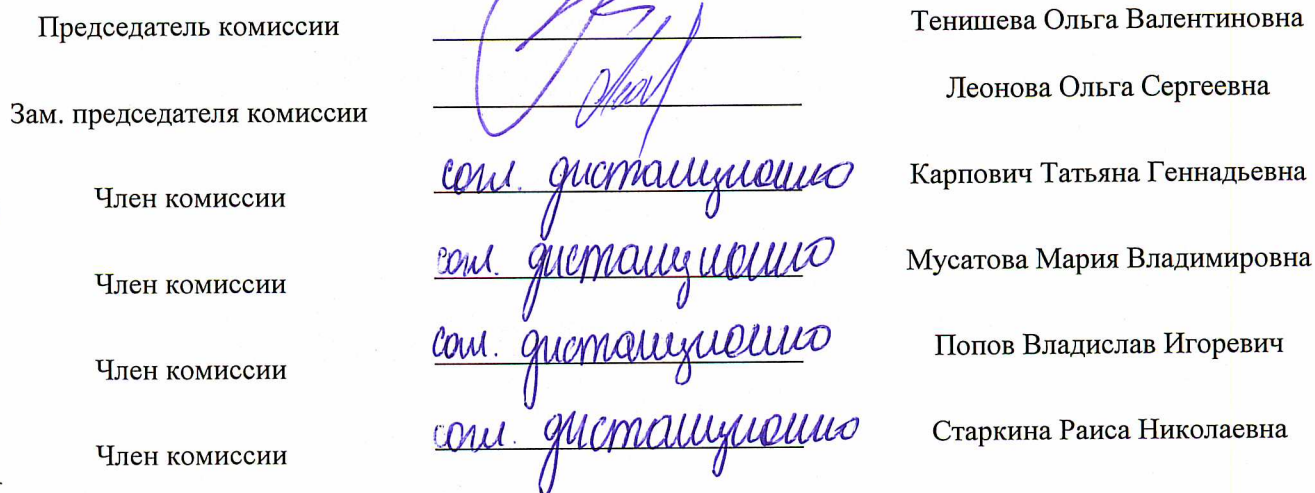 Председатель комиссии Тенишева Ольга Валентиновна
Зам. председателя комиссии Леонова Ольга Сергеевна
Член комиссии согл. дистанционно Карпович Татьяна Геннадьевна
Член комиссии согл. дистанционно Мусатова Мария Владимировна
Член комиссии согл. дистанционно Попов Владислав Игоревич
Член комиссии согл. дистанционно Старкина Раиса Николаевна